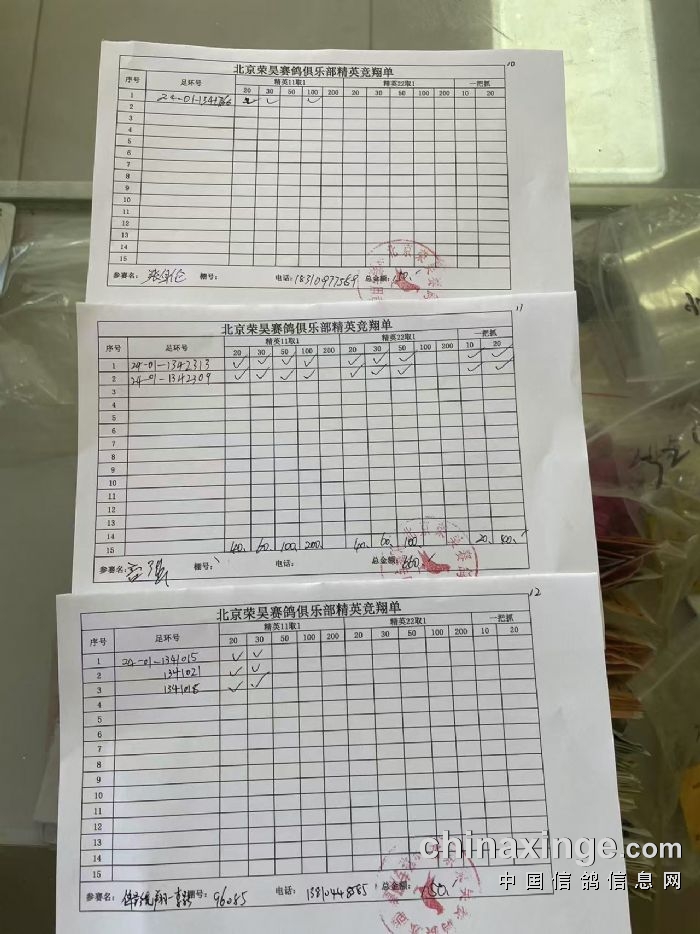 10
北京荣昊赛鸽俱乐部精英竞翔单
序号 足环号 精英11取1 精英22取1 一把抓
20 30 50 100 200 20 30 50 100 200 10 20
1 24-01-1341766 ✓ ✓ ✓
2
3
4
5
6
7
8
9
10
11
12
13
14
15
参赛名: 棚号: 电话: 18310977569 总金额: 150.
11
北京荣昊赛鸽俱乐部精英竞翔单
序号 足环号 精英11取1 精英22取1 一把抓
20 30 50 100 200 20 30 50 100 200 10 20
1 24-01-1342313 ✓ ✓ ✓ ✓ ✓ ✓ ✓ ✓ ✓
2 24-01-1342309 ✓ ✓ ✓ ✓ ✓ ✓ ✓ ✓ ✓
3
4
5
6
7
8
9
10
11
12
13
14
15 40. 60. 100. 200. 40. 60. 100. 20. 40.
参赛名: 棚号: 电话: 总金额: 660.
12
北京荣昊赛鸽俱乐部精英竞翔单
序号 足环号 精英11取1 精英22取1 一把抓
20 30 50 100 200 20 30 50 100 200 10 20
1 24-01-1341015 ✓ ✓
2 1341021 ✓ ✓
3 1341018 ✓ ✓
4
5
6
7
8
9
10
11
12
13
14
15
参赛名: 棚号: 96085 电话: 总金额: 150.
chinaxinge.com
中国信鸽信息网